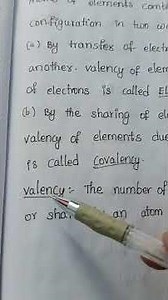 of elements comb
configuration in two w
(a) By transfer of elect
another. valency of elem
of electrons is called El
(b) By the sharing of el
valency of elements du
is called Covalency.
valency :- The number of
or sha an atom